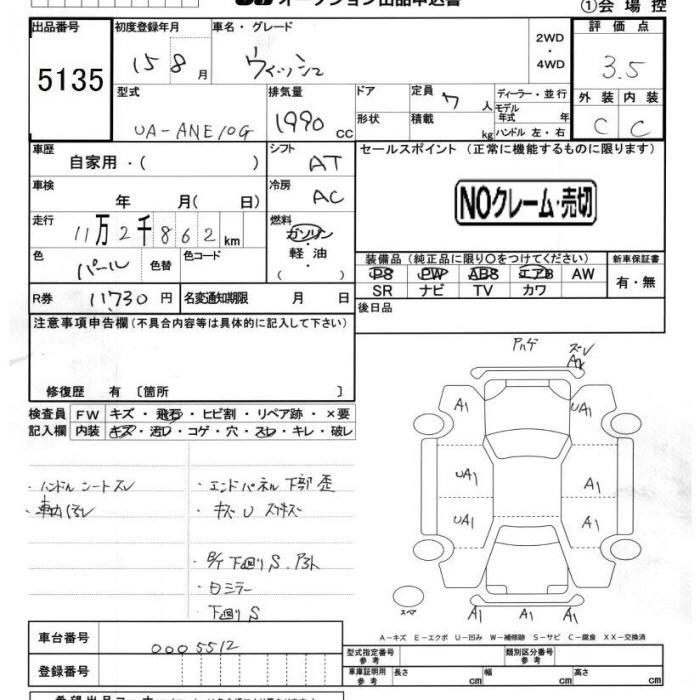 オークション出品申込書
①会場控
出品番号
5135
初度登録年月
15 8 月
車名・グレード
ウィッシュ
2WD
・
4WD
評価点
3.5
外装 内装
C C
型式
UA-ANE10G
排気量
1990 cc
ドア
形状
定員 7 人
積載 kg
ディーラー・並行
モデル年式 年
ハンドル 左・右
車歴
自家用・( )
シフト
AT
セールスポイント (正常に機能するものに限ります)
NOクレーム・売切
車検
年 月( 日)
冷房
AC
走行
11万2千862km
燃料
ガソリン
・
軽・油
・
( )
色
パール
色替
色コード
装備品(純正品に限り○をつけてください)
PS PW ABS エアB AW
SR ナビ TV カワ
新車保証書
有・無
R券 11,730円
名変通知期限 月 日
後日品
注意事項申告欄(不具合内容等は具体的に記入して下さい)
修復歴 有〔箇所 〕
検査員記入欄
FW キズ・飛石・ヒビ割・リペア跡・×要
内装 キズ・汚レ・コゲ・穴・スレ・キレ・破レ
・ハンドル シートスレ
・車内汚レ
・エンドパネル下部歪
・キズ U スリキズ
・下廻りS
・ミラー
・下廻りS
ズレ
A1
UA1
UA1
A1
UA1
A1
A1
A1
A1
スペア
A-キズ E-エクボ U-凹み W-補修跡 S-サビ C-腐食 XX-交換済
車台番号
0005512
登録番号
型式指定番号
参考
類別区分番号
参考
車庫証明用
参考
長さ cm
幅 cm
高さ cm